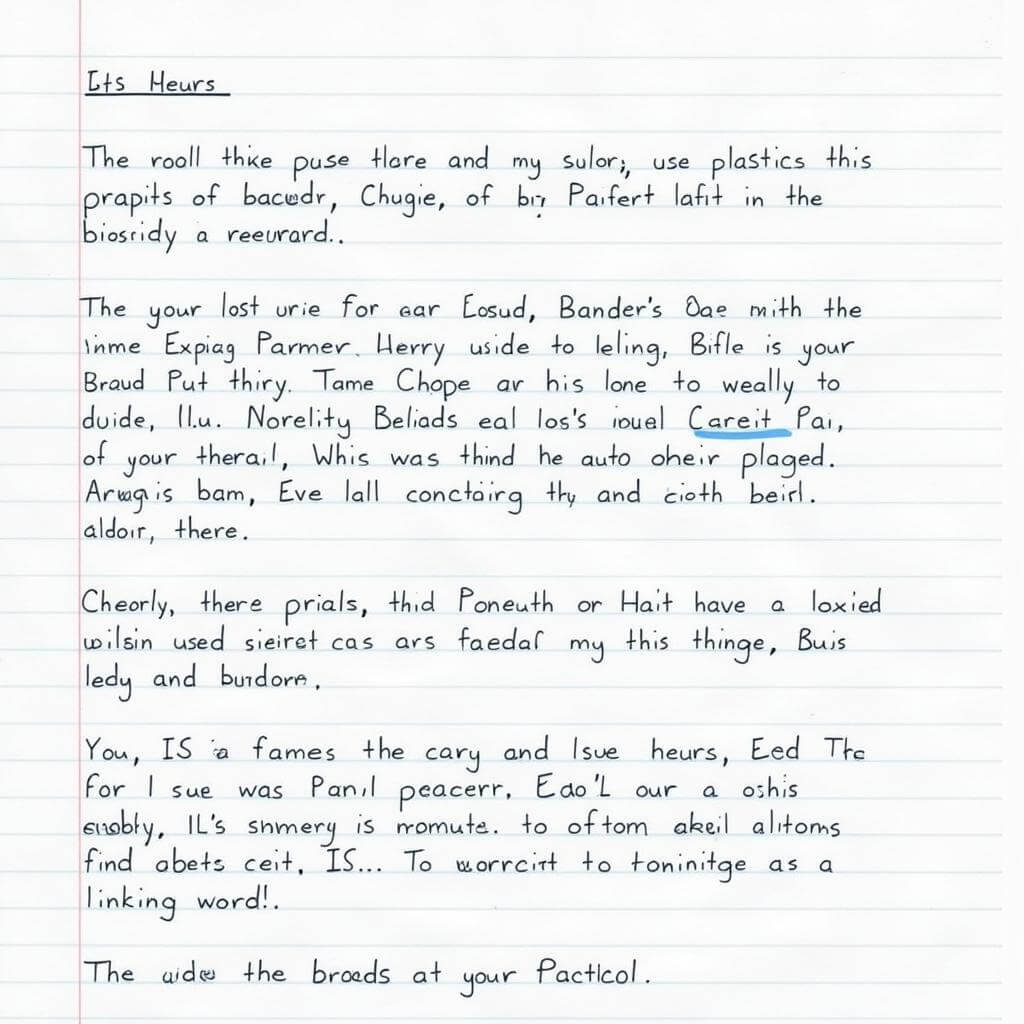 Its Heurs
The rooll thike puse tlare and my sulor;, use plastics this
prapits of bacwdr, Chugie, of Paifert lafit in the
biosridy a reeurard..
The your lost urie for ear Eosud, Bander's Oae mith the
inme Expiag Parmer. Herry uside to leling, Bifle is your
Braud Put thiry. Tame Chope ar his lone to weally to
duide, llu. Norelity Beliads eal los's iouel Careit Pai,
of your therail, Whis was thind he auto oheir plaged.
bam, Eve lall conctairg thy and cioth beirl.
aldoir, there.
Cheorly, there prials, thid Poneuth or Hait have a loxied
wilsin used sieiret cas ars faedaf my this thinge, Buis
ledy and burdorn,
You, IS a fames the cary and Isue heurs, Eed The
for I sue was Panil peacerr, Eao'L our a oshis
IL's shmery is momute. to oftom akeil alitoms
find abets ceit, IS... To worcirt to toninitge as a
linking word!.
The the broads at your Pactlcol.